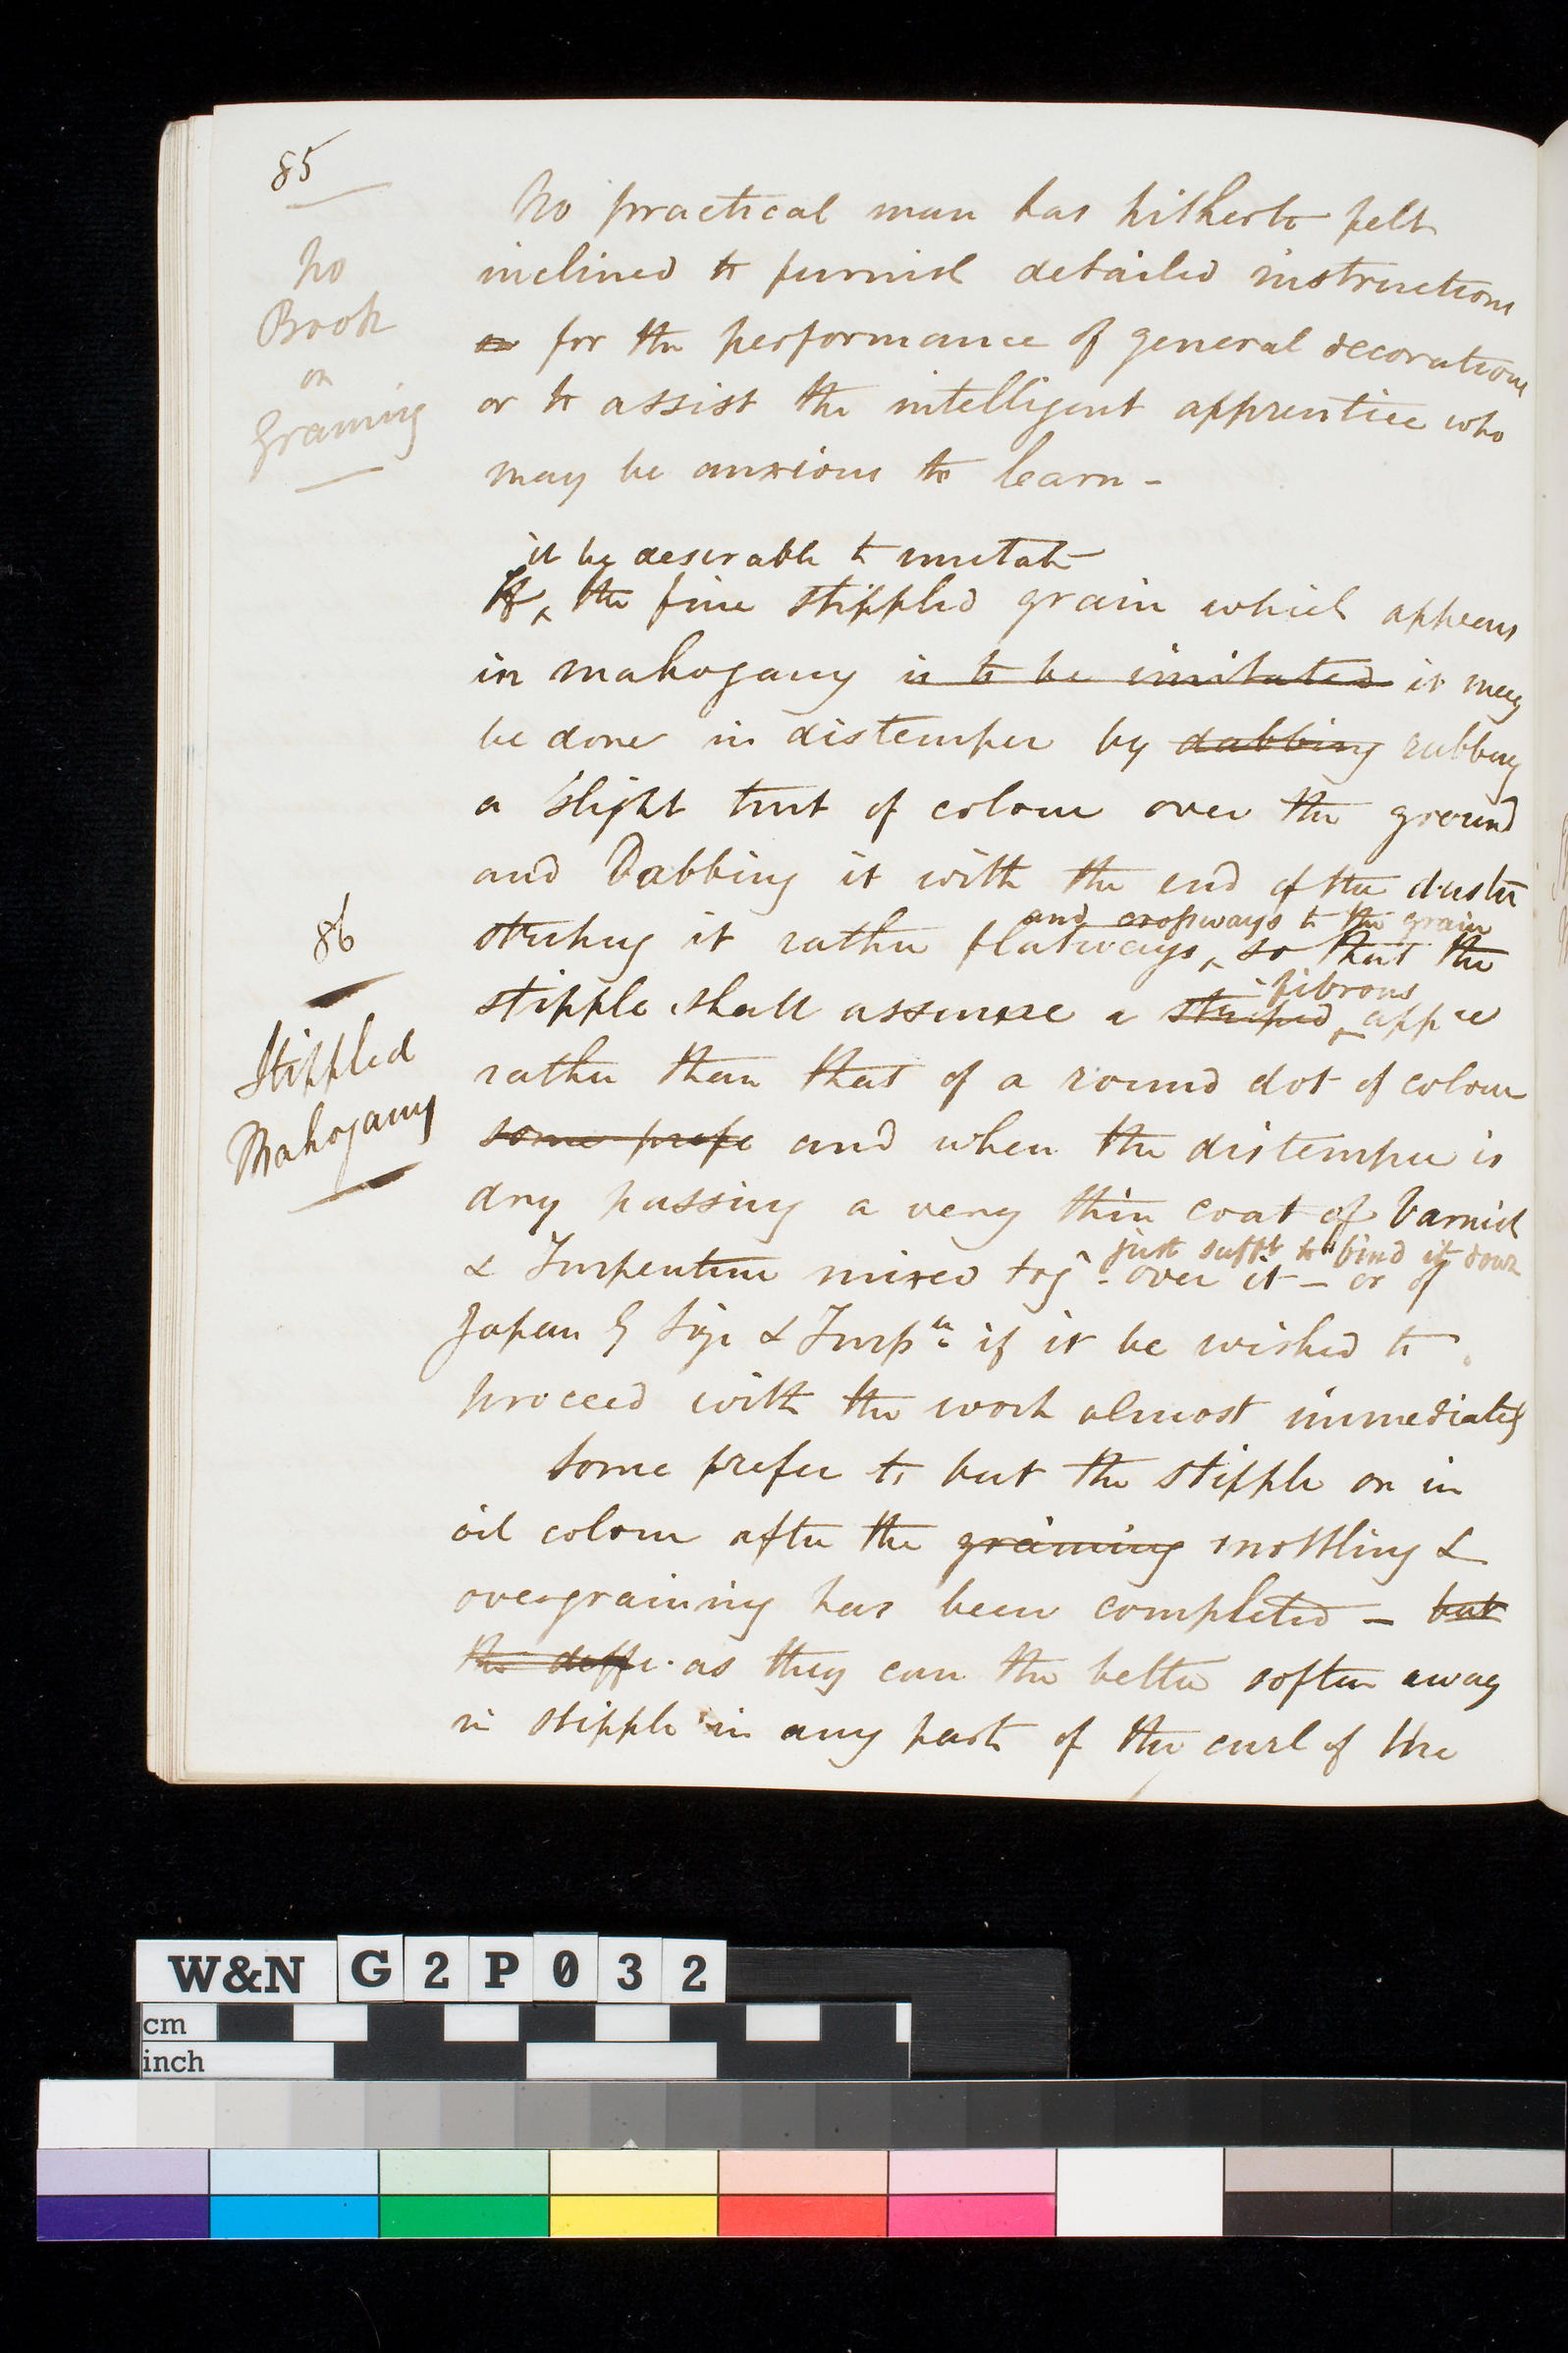 85
No
Book
on
Graining
No practical man has hitherto felt
inclined to furnish detailed instructions
for the performance of general decorations
or to assist the intelligent apprentice who
may be anxious to learn -
it be desirable to imitate
If ‸ the fine stippled grain which appears
in mahogany is to be imitated it may
be done in distemper by dabbing rubbing
a slight tint of colour over the ground
and Dabbing it with the end of the duster
and crossways to the grain
striking it rather flatways ‸ so that the
fibrous
stipple shall assume a striped ‸ appce
86
Stippled
Mahogany
rather than that of a round dot of colour
some prefe and when the distemper is
dry passing a very thin coat of Varnish
just sufft to bind it down
& Turpentine mixed togr over it - or of
Japan G Size & Turpne if it be wished to
proceed with the work almost immediately
Some prefer to put the stipple on in
oil colour after the graining mottling &
overgraining has been completed - but
the diffe. as they can the better soften away
in stipple in any part of the curl of the
W&N G2P032
cm
inch